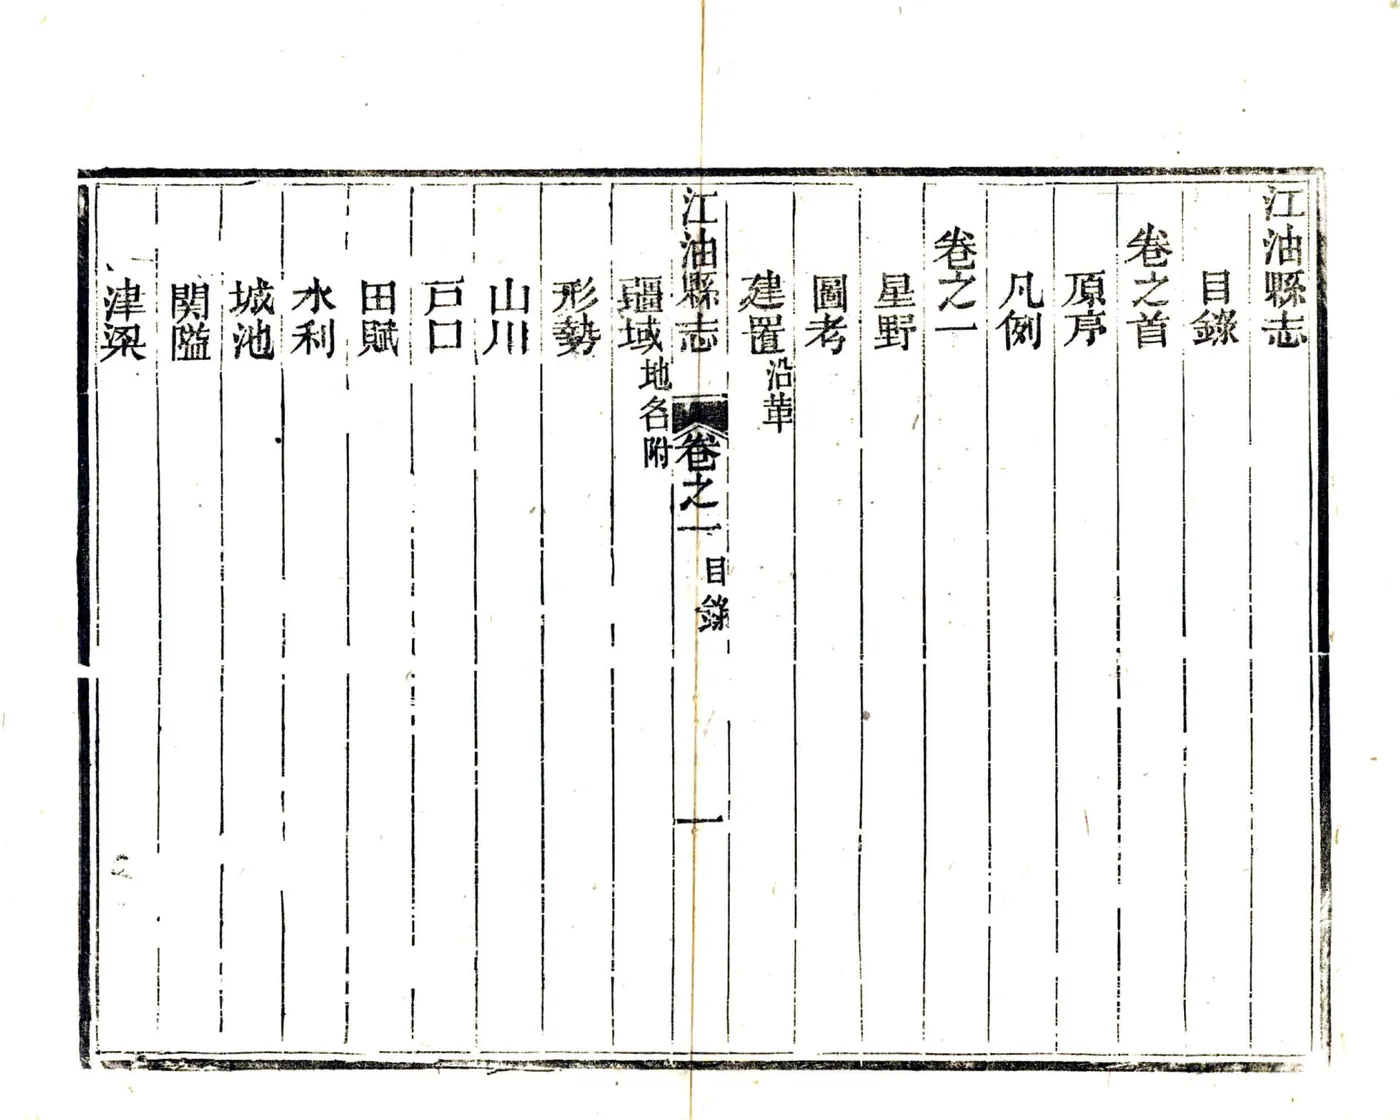 江油縣志
目錄
卷之首
原序
凡例
卷之一
星野
圖考
建置沿革
江油縣志 卷之一 目錄 一
疆域地名附
形勢
山川
戸口
田賦
水利
城池
関隘
津梁